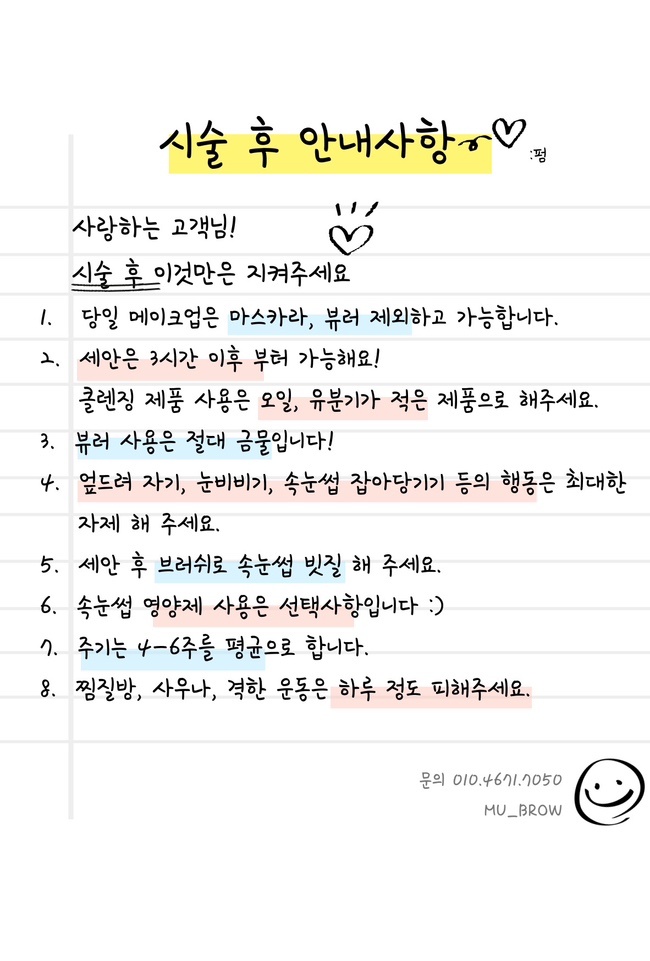 시술 후 안내사항
:펌
사랑하는 고객님!
시술 후 이것만은 지켜주세요
1. 당일 메이크업은 마스카라, 뷰러 제외하고 가능합니다.
2. 세안은 3시간 이후 부터 가능해요!
클렌징 제품 사용은 오일, 유분기가 적은 제품으로 해주세요.
3. 뷰러 사용은 절대 금물입니다!
4. 엎드려 자기, 눈비비기, 속눈썹 잡아당기기 등의 행동은 최대한
자제 해 주세요.
5. 세안 후 브러쉬로 속눈썹 빗질 해 주세요.
6. 속눈썹 영양제 사용은 선택사항입니다 :)
7. 주기는 4-6주를 평균으로 합니다.
8. 찜질방, 사우나, 격한 운동은 하루 정도 피해주세요.
문의 010.4671.7050
MU_BROW